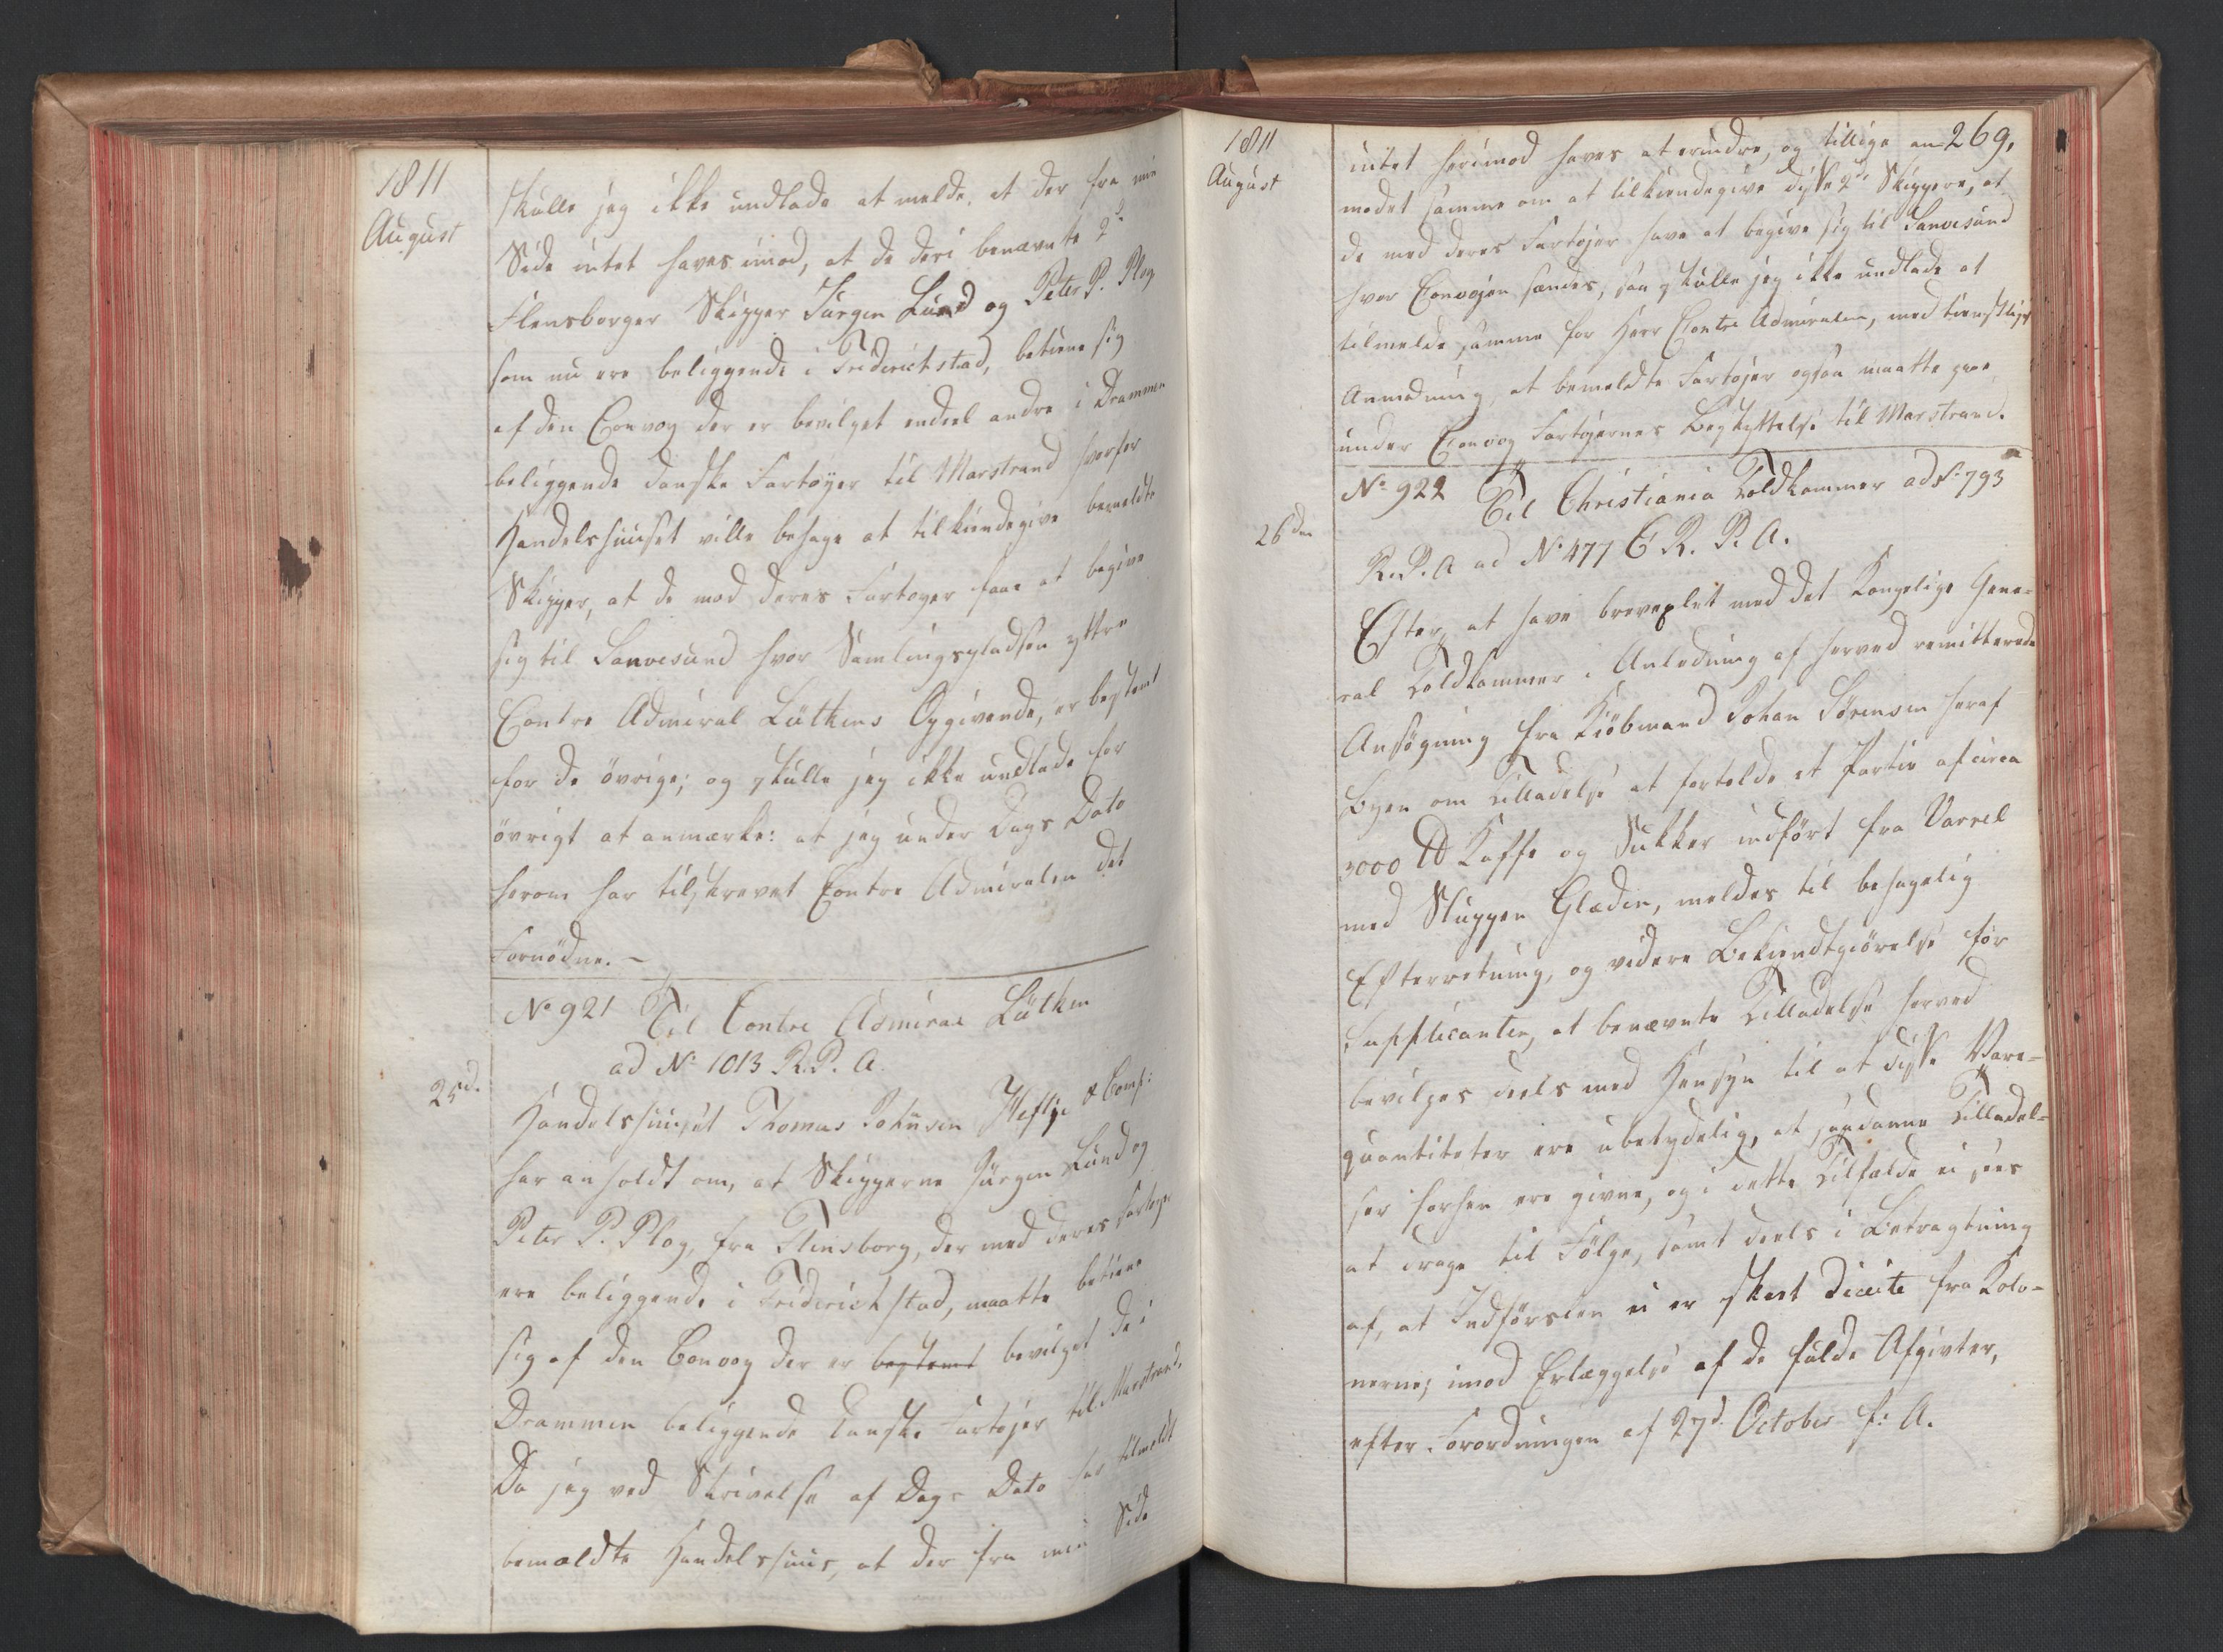 1811
August
skulle jeg ikke undlade at melde, at der fra min
Side intet haves imod, at de deri benævnte 2de
Flensborger Skipper Jürgen Lund og Peter P. Ploy
som nu ere beliggende i Friderichstad, betiene sig
af den Convoy der er bevilget endeel andre i Drammen
beliggende danske Fartøyer til Marstrand hvorfor
Handelshuuset ville behage at tilkiendegive bemeldte
Skipper, at de med deres Fartøyer faae at begive
sig til Sanvesund hvor Samlingspladsen yttre
Contre Admiral Lütkens Opgivende, er bestemt
for de øvrige; og skulle jeg ikke undlade for
øvrigt at anmærke: at jeg under Dags Dato
herom har tilskrevet Contre Admiralen det
Fornødne. –
No 921 Til Contre Admiral Lütken
ad No 1013 R. P. A.
25d.
Handelshuuset Thomas Johnsen Heftye & Comp:
har anholdt om, at Skipperne Jürgen Lund og
Peter P. Ploy, fra Flensborg, der med deres Fartøyer
ere beliggende i Friderichstad, maatte betiene
sig af den Convoy der er bestemt bevilget de i
Drammen beliggende danske Fartøjer til Marstrand.
Da jeg ved Skrivelse af Dags Dato har tilmeldt
bemældte Handelshuus, at der fra min Side
1811
August
269.
intet herimod haves at erindre, og tillige an-
modet samme om at tilkiendegive disse 2de Skippere, at
de med deres Fartøjer have at begive sig til Sanvesund
hvor Convojen samles, saa skulle jeg ikke undlade at
tilmelde samme for Herr Contre Admiralen, med tienstligst
Anmodning, at bemeldte Fartøjer ogsaa maatte gaae
under Convoy Fartøjernes Beskyttelse til Marstrand.
No 922 Til Christiania Toldkammer ad No 793
26den
R. P. A ad No 477 C R. P. A.
Efter at have brevexlet med det Kongelige Gene-
ral Toldkammer i Anledning af herved remitterede
Ansøgning fra Kiöbmand Johan Sørensen heraf
Byen om Tilladelse at fortolde et Partie af circa
3000 ℔ Kaffe og Sukker indført fra Varrel
med Sluppen Glæden, meldes til behagelig
Efterretning, og videre Bekiendtgiørelse for
Supplicanten, at benævnte Tilladelse herved
bevilges deels med Hensyn til at disse Vare-
quantiteter ere ubetydelig, at saadanne Tilladel-
ser forhen ere givne, og i dette Tilfælde ei sees
at drage til Følge, samt deels i Betragtning
af, at Indførselen ei er skeet directe fra Kolo-
nerne; imod Erlæggelse af de fulde Afgivter,
efter Forordningen af 27d. October f: A.